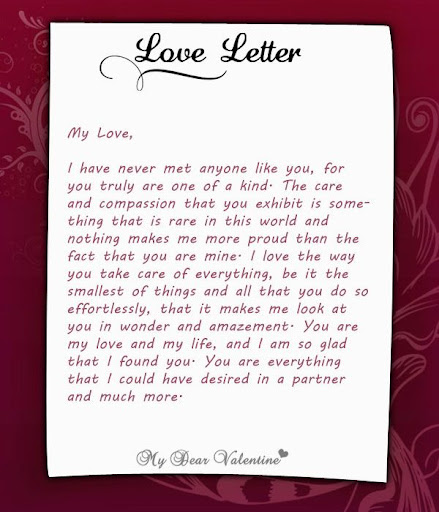 Love Letter
My Love,
I have never met anyone like you, for
you truly are one of a kind. The care
and compassion that you exhibit is some-
thing that is rare in this world and
nothing makes me more proud than the
fact that you are mine. I love the way
you take care of everything, be it the
smallest of things and all that you do so
effortlessly, that it makes me look at
you in wonder and amazement. You are
my love and my life, and I am so glad
that I found you. You are everything
that I could have desired in a partner
and much more.
My Dear Valentine